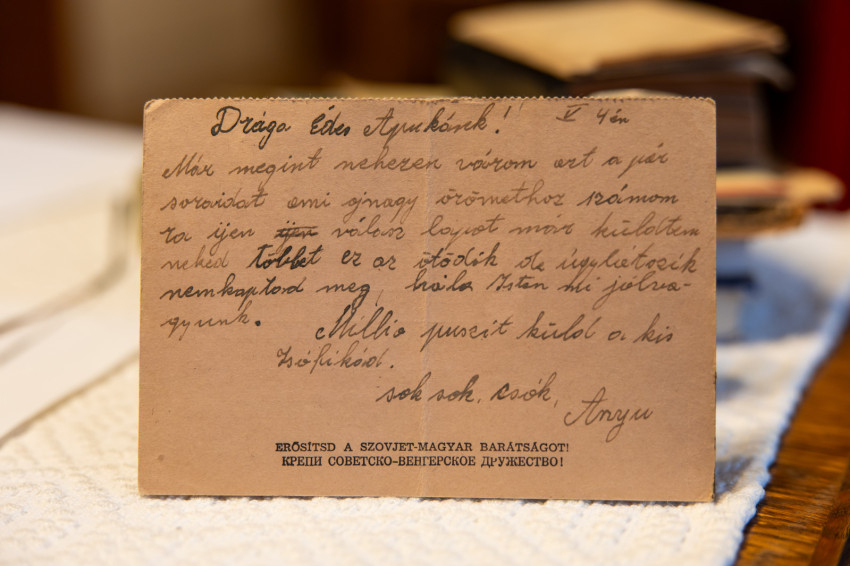 Drága Édes Apukánek! V 4én
Már megint nehezen várom azt a pár
soraidat ami ojnagy örömethoz számom
ra ijen ijen válasz lapot már küldtem
neked többet ez az ötödik de úgylátszik
nemkaptad meg, hála Isten mi jólva-
gyunk.
Millio puszit küld a kis
Zsófikád.
sok sok, csók,
Anyu
ERŐSÍTSD A SZOVJET-MAGYAR BARÁTSÁGOT!
КРЕПИ СОВЕТСКО-ВЕНГЕРСКОЕ ДРУЖЕСТВО!